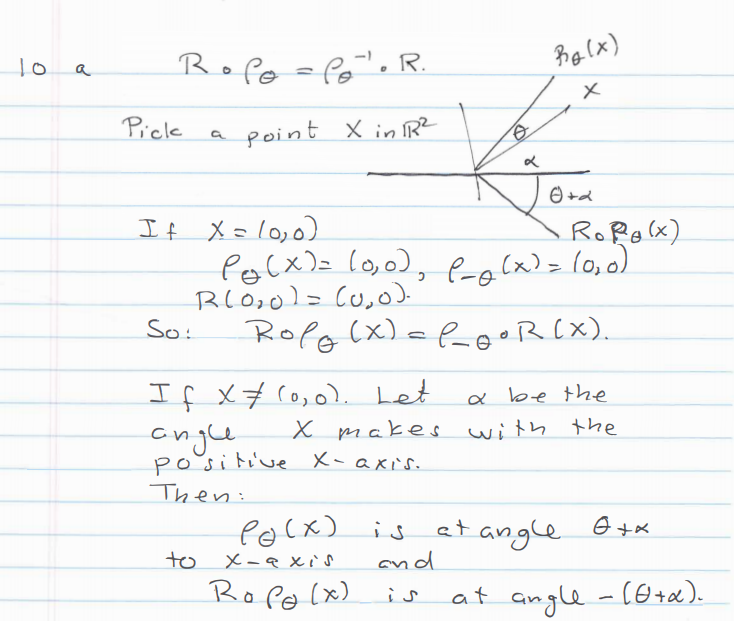 10 a R∘ρ_θ = ρ_θ⁻¹∘R.
Pick a point X in ℝ²
ρ_θ(x)
x
θ
α
θ+α
R∘ρ_θ(x)
If X = (0,0)
ρ_θ(x) = (0,0), ρ_-θ(x) = (0,0)
R(0,0) = (0,0).
So: R∘ρ_θ(x) = ρ_-θ∘R(x).
If X ≠ (0,0). Let α be the
angle X makes with the
positive x-axis.
Then:
ρ_θ(x) is at angle θ+α
to x-axis and
R∘ρ_θ(x) is at angle -(θ+α).